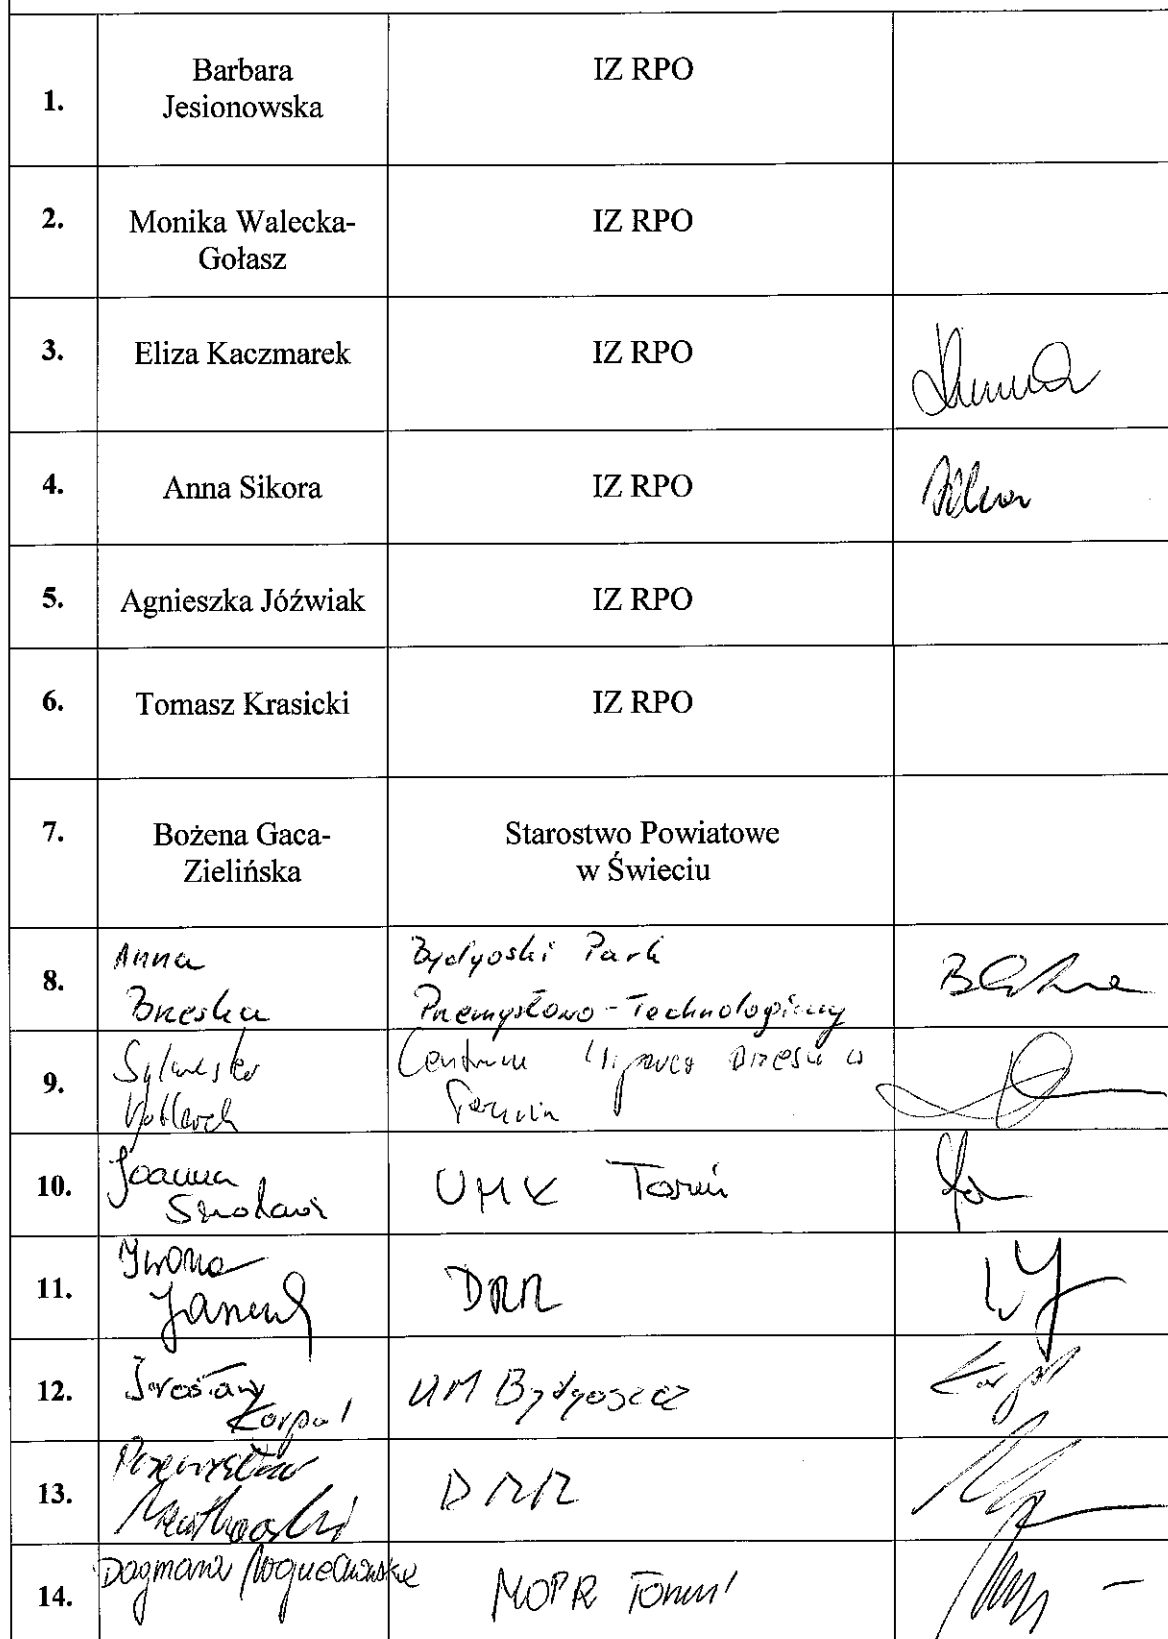 1.
Barbara
Jesionowska
IZ RPO
2.
Monika Walecka-
Gołasz
IZ RPO
3.
Eliza Kaczmarek
IZ RPO
4.
Anna Sikora
IZ RPO
5.
Agnieszka Jóźwiak
IZ RPO
6.
Tomasz Krasicki
IZ RPO
7.
Bożena Gaca-
Zielińska
Starostwo Powiatowe
w Świeciu
8.
Anna
Brzeska
Bydgoski Park
Przemysłowo-Technologiczny
9.
Centrum
10.
Joanna
UMK Toruń
11.
Iwona
DRR
12.
Jarosław
Karpal
UM Bydgoszcz
Karpal
13.
Przemysław
DRR
14.
Dagmara
MOPR Toruń